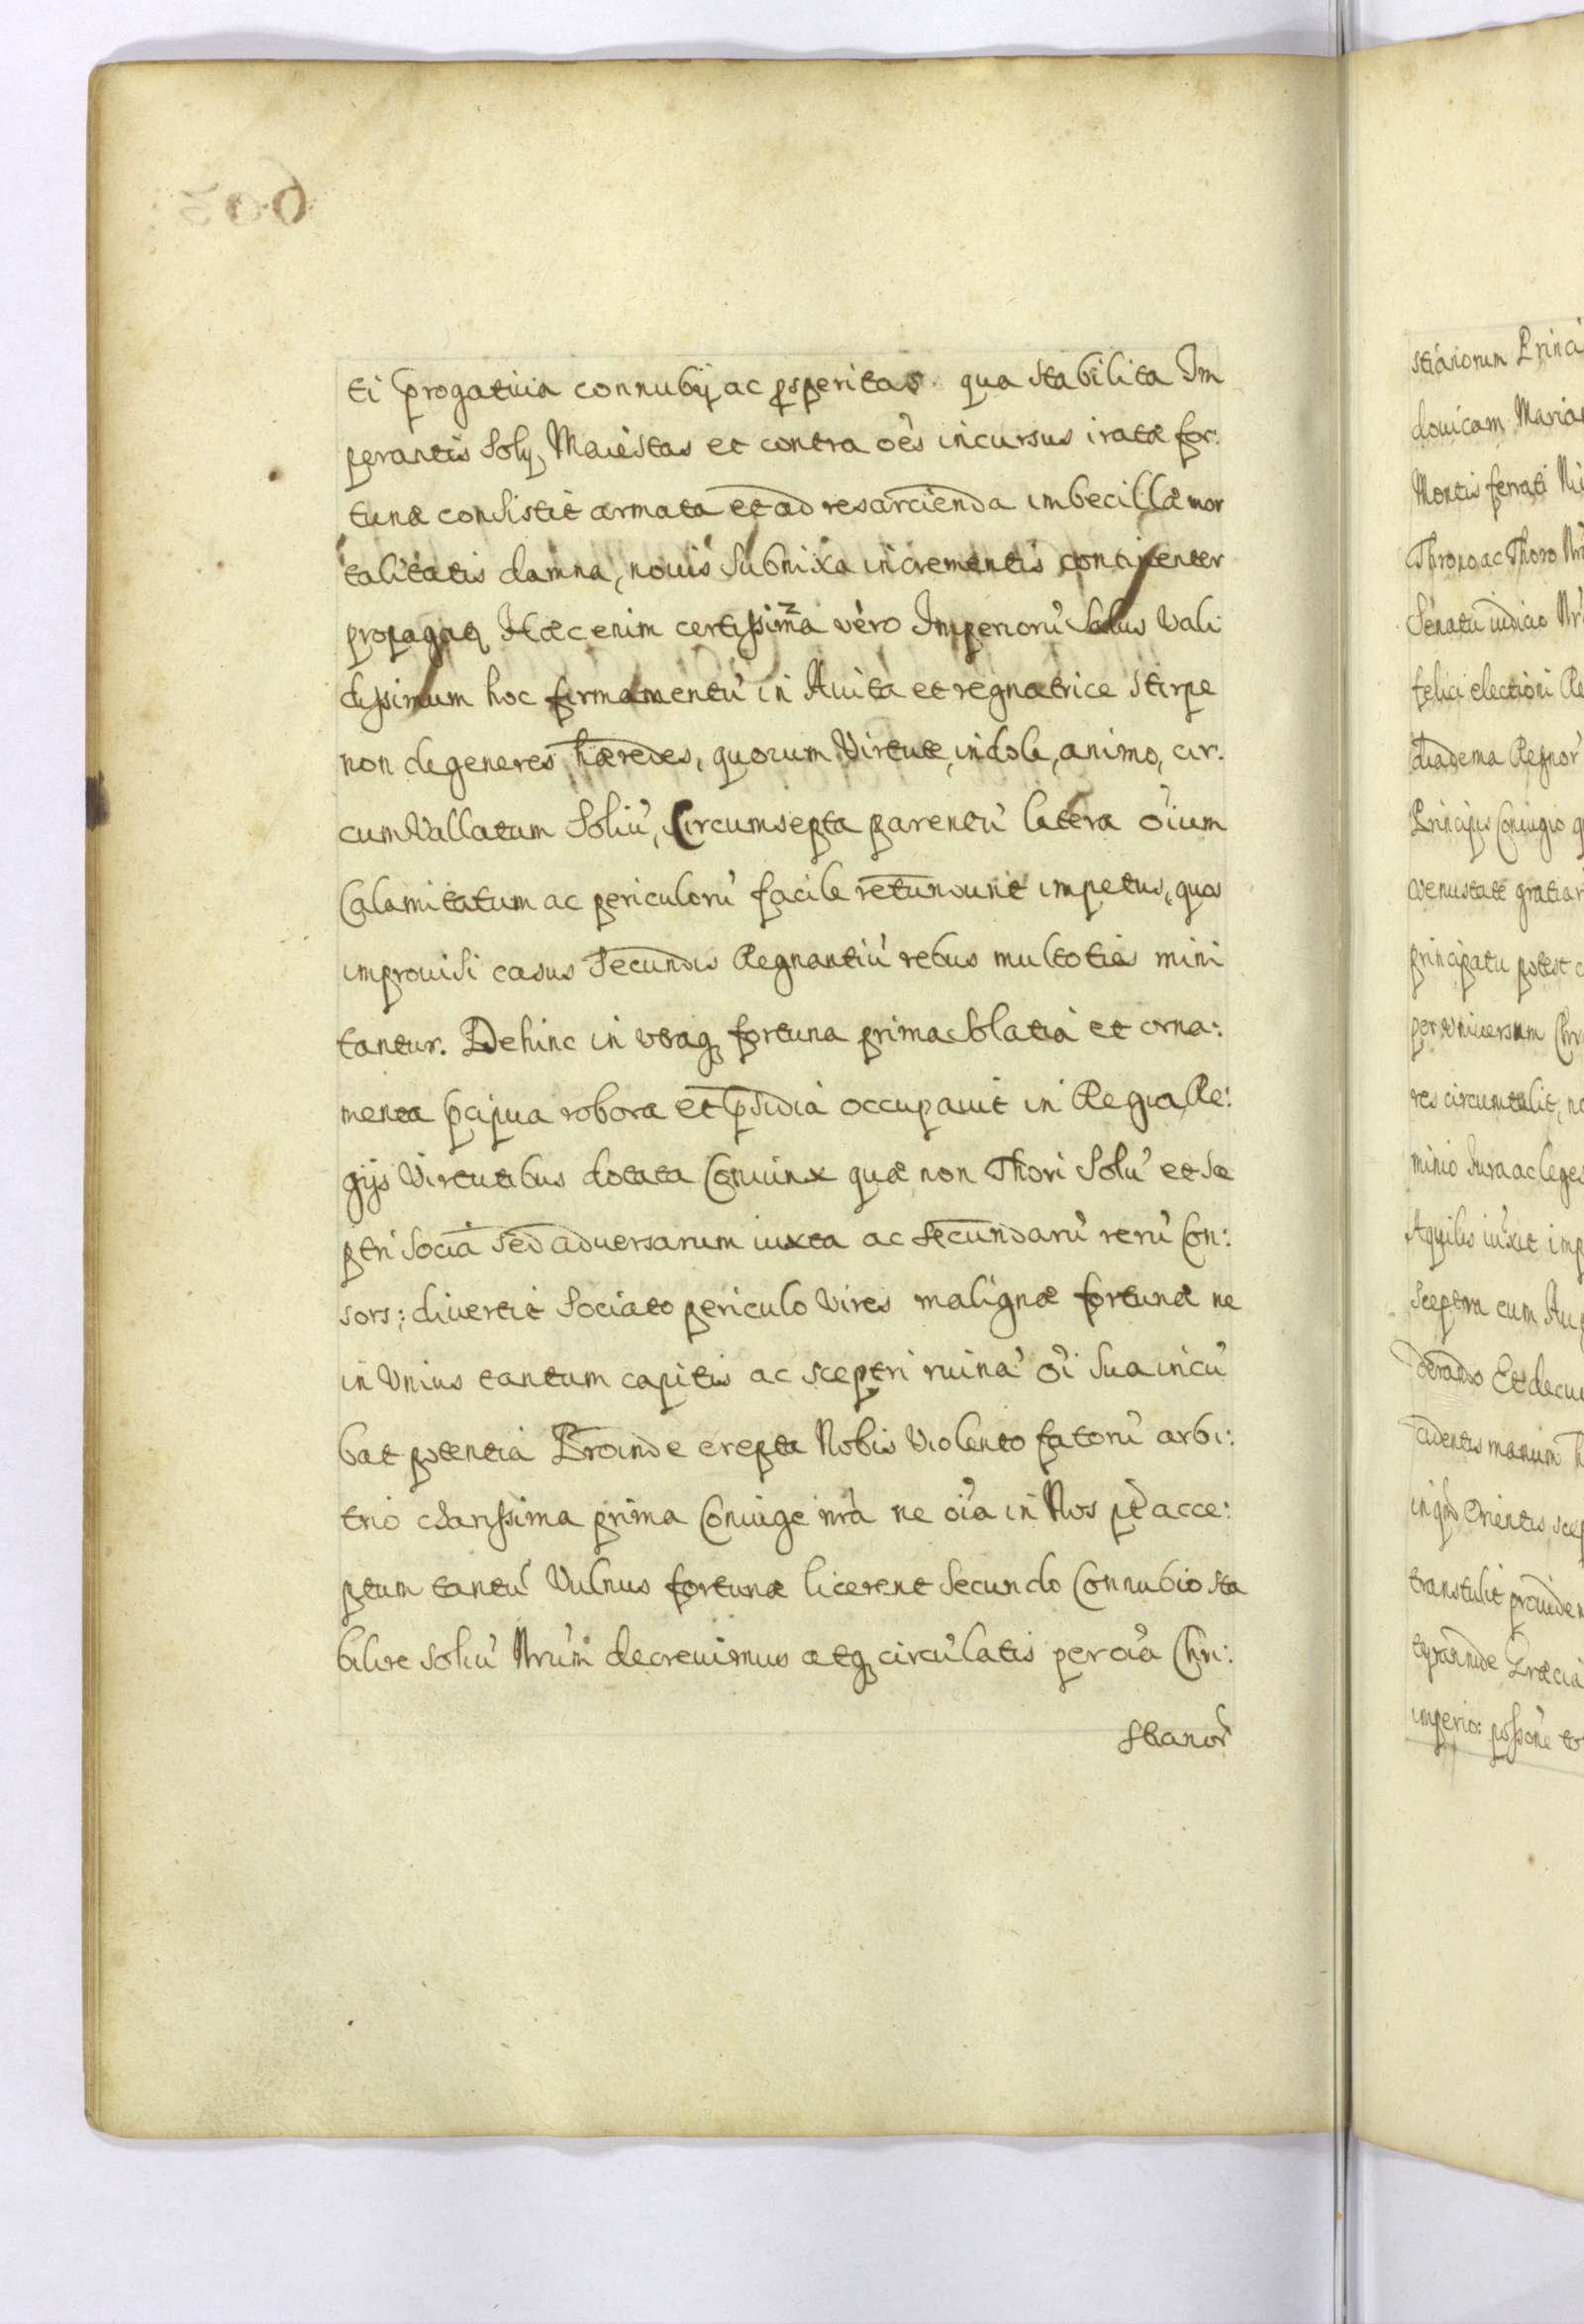 ti progativa connubij ac prsperitas qua stabilita Im
perantis Solij, Maiestas et contra oes incursus iratæ for:
tunæ consistit armata et ad resarcienda imbecillæ mor
talitatis damna, nouis subnixa incrementis continenter
propagatq Hæc enim certissima vero Imperiorū Salus Vali
dissimum hoc firmamentū in Auita et regnatrice stirpe
non degeneres hæredes, quorum Virtute, indole, animo, cir.
cumVallatum Soliū, Circumsepta parentū latera oium
Calamitatum ac periculorū facile retundunt impetus, quos
improuisi casus Secundis Regnantiū rebus multoties mini
tantur. Dehinc in vtraq fortuna prima Solatia et orna:
menta pcipua robora et psidia occupauit in Regia, Re:
gijs Virtutibus dotata Coniunx quæ non Thori Solū et Sce
ptri Socia sed aduersarum iuxta ac secundarū rerū Con:
sors; diuertit Sociato periculo Vires malignæ fortunæ ne
in Vnius tantum capitis ac sceptri ruinā oi sua incū
bat potentia Proinde erepta Nobis Violento fatorū arbi:
trio charissima prima Coniuge nrā ne oia in Nos pt acce:
ptum tantū Vulnus fortunæ licerent Secundo Connubio sta
bilire soliū Nrūm decreuimus atq circūlatis per oia Chri:
stianor
stianorum Princi
douicam Maria
Montis ferrati Ni
Throno ac Thoro Nr
Senatu iudicio Nr
felici electioni Re
diadema Regnor
Principis Coniugio q
venustate gratiar
principatu potest c
per Vniuersum Chr
res circumtulit, no
minio Iura ac leges
Aquilis iuxit imp
Sceptra cum Aug
derando Et decu
cidentis manum
in qbs Orientis scep
transtulit prouiden
tyrannide Græcia
imperio: possone to